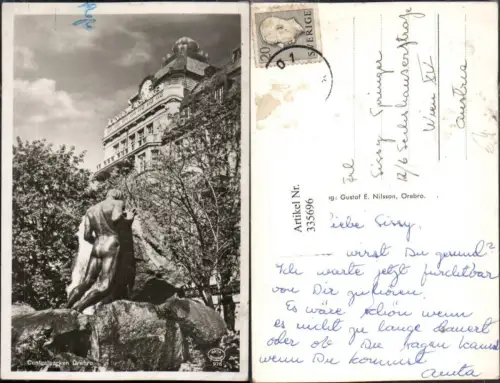 Centralbacken Örebro
20
SVERIGE
Frl
Sissy Springer
Wien
Austria
Artikel Nr.
335696
g: Gustof E. Nilsson, Örebro.
liebe Sissy,
wirst Du gesund?
Ich warte jetzt furchtbar
von Dir zu hören.
Es wäre schön wenn
es nicht zu lange dauert
oder ob Du sagen kannst
wenn Du kommst
Anita